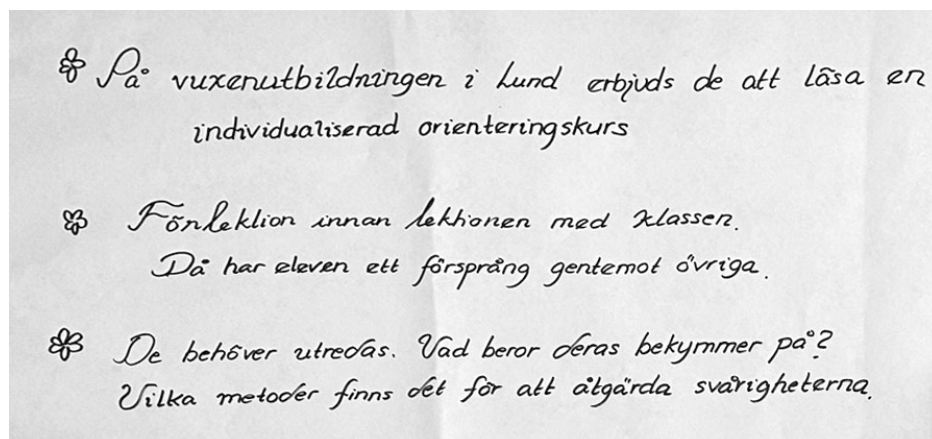 På vuxenutbildningen i Lund erbjuds de att läsa en
individualiserad orienteringskurs
Förlektion innan lektionen med klassen.
Då har eleven ett försprång gentemot övriga.
De behöver utredas. Vad beror deras bekymmer på?
Vilka metoder finns det för att åtgärda svårigheterna.